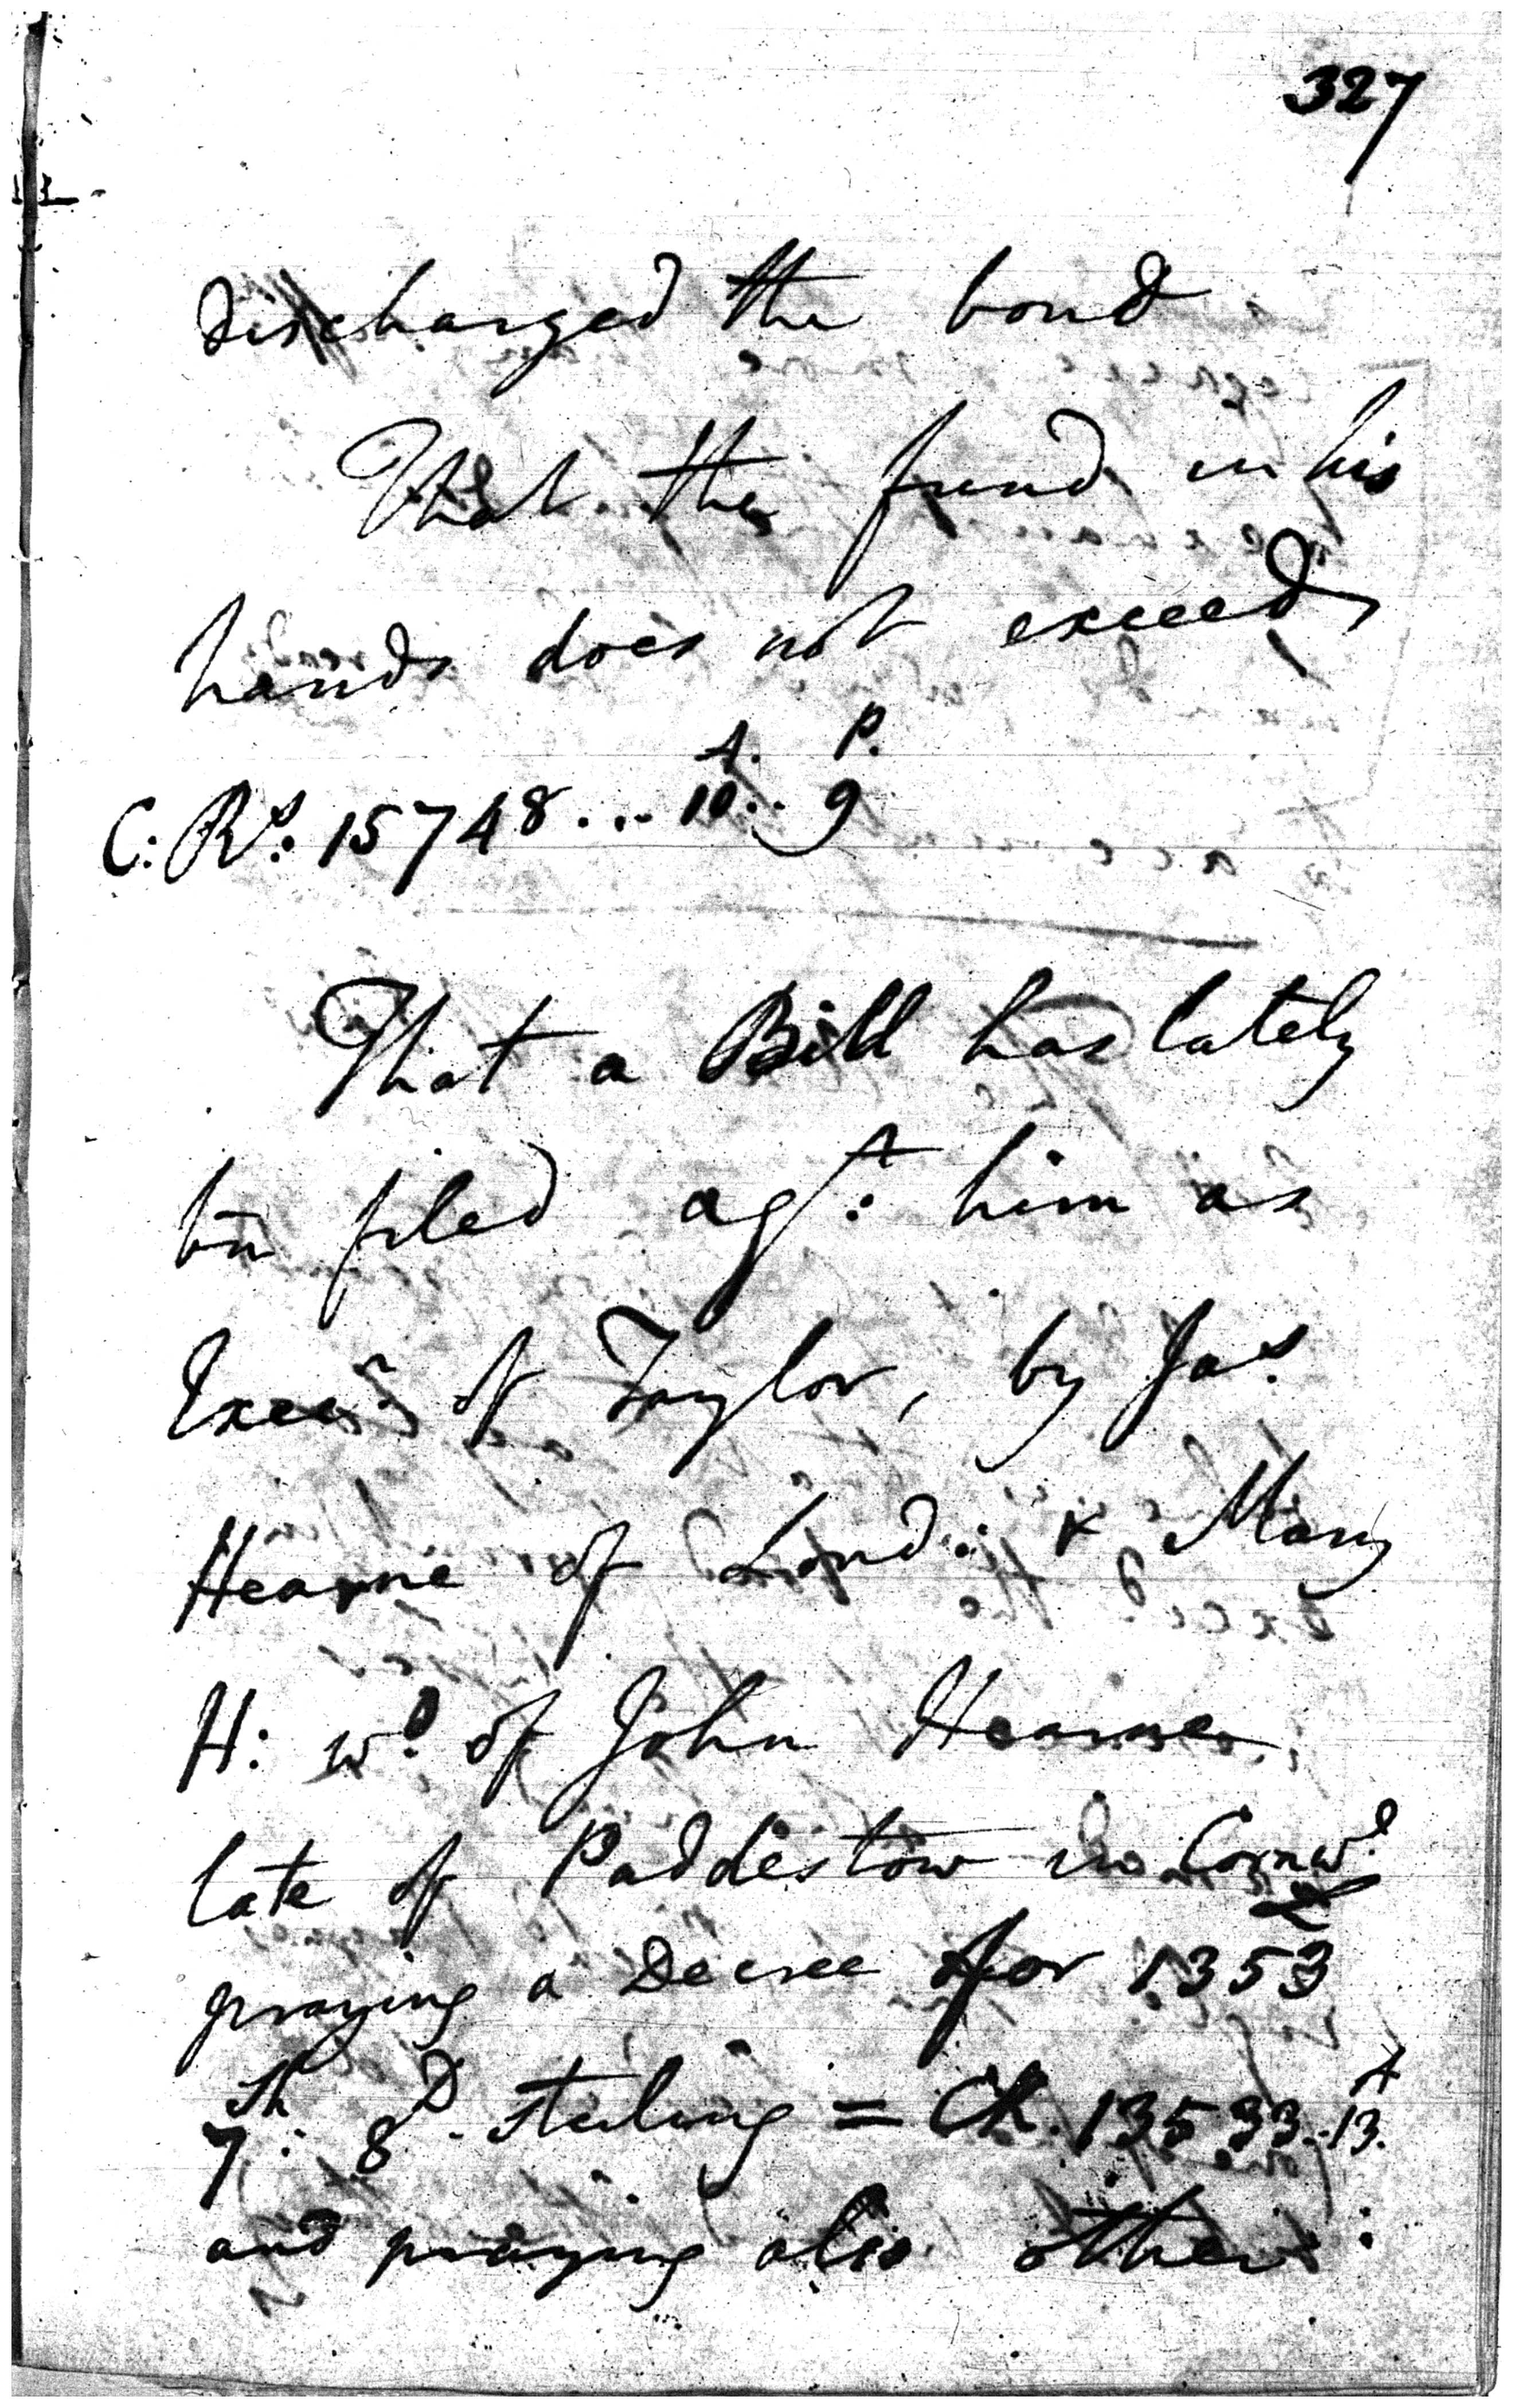 327
discharged the bond
That the fund in his
hands does not exceed
A. P.
C: Rs: 15748... 10.. 9
That a Bill has lately
bn filed agt: him as
Execr of Taylor, by Jas.
Hearne of Lond: & Mary
H: wd. of John Hearne
late of Paddestow in Cornwl
praying a Decree for 1353£
7Sh: 8D. sterling = CR. 13533..13.A
and praying also other: